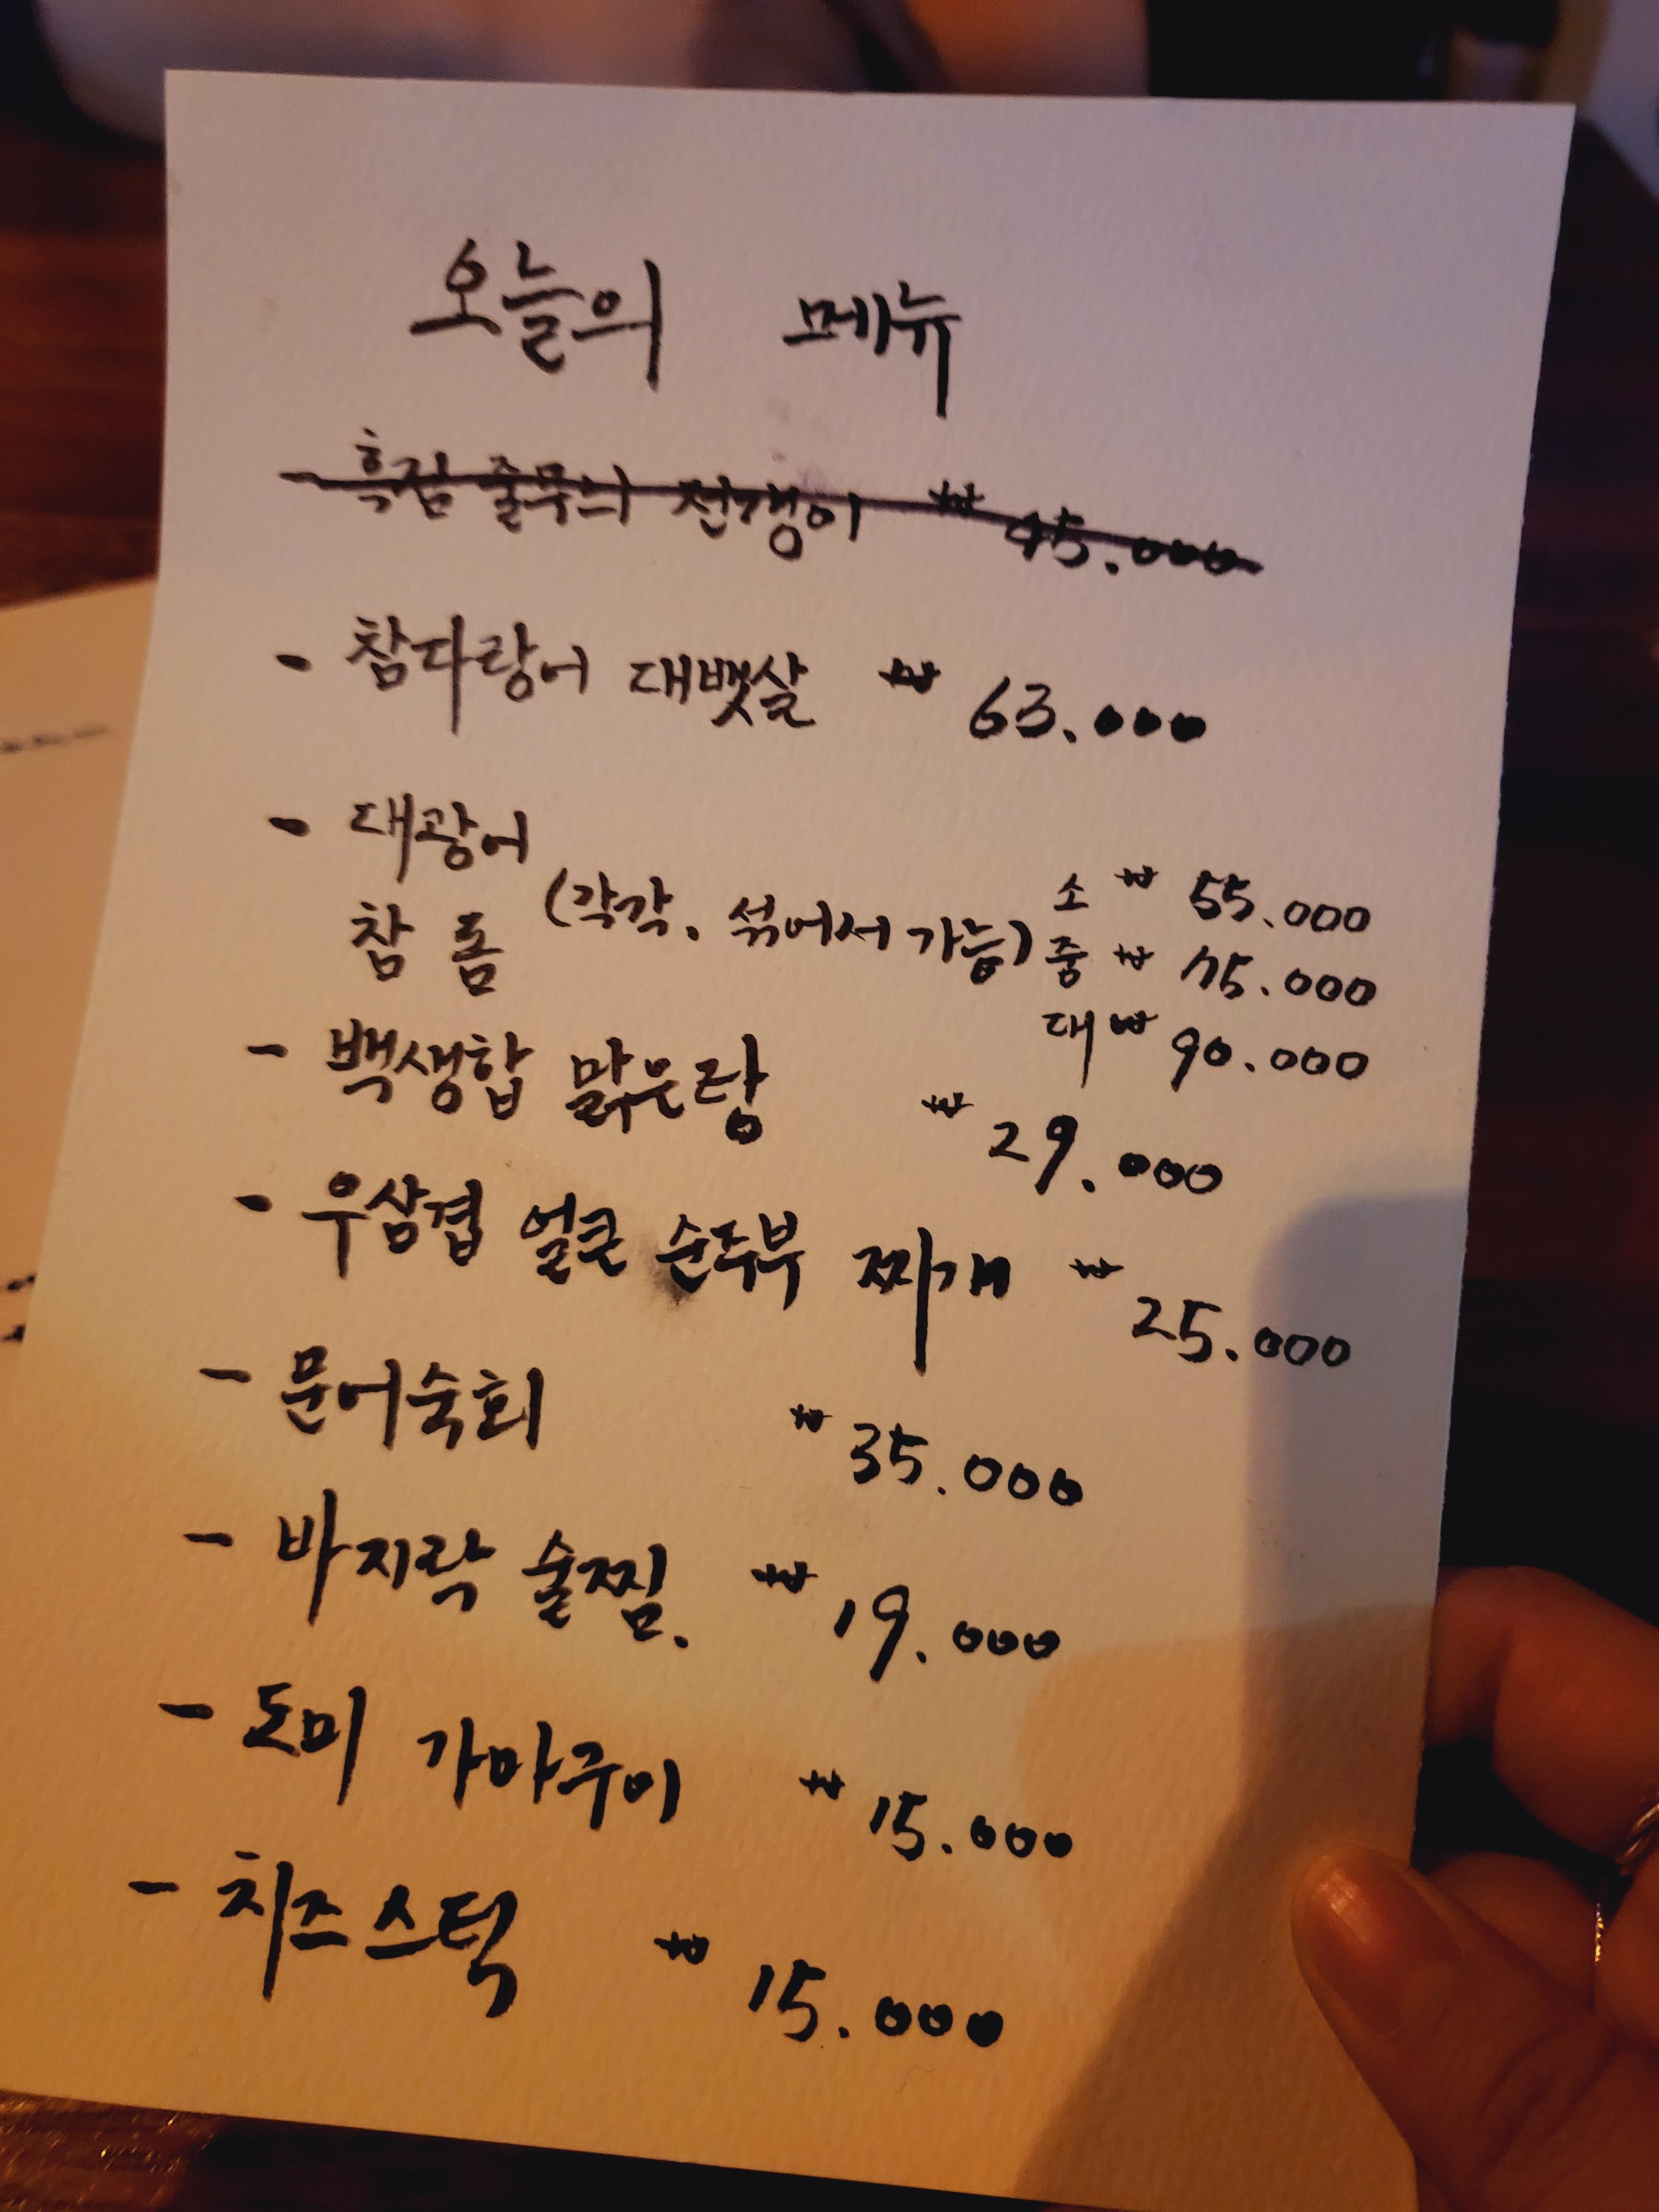 오늘의 메뉴
- 흑점 줄무늬 전갱이 ₩ 45.000
- 참다랑어 대뱃살 ₩ 63.000
- 대광어
참돔 (각각. 섞어서 가능) 소 ₩ 55.000
중 ₩ 75.000
대 ₩ 90.000
- 백생합 맑은탕 ₩ 29.000
- 우삼겹 얼큰 순두부 찌개 ₩ 25.000
- 문어숙회 ₩ 35.000
- 바지락 술찜. ₩ 19.000
- 도미 가마구이 ₩ 15.000
- 치즈스틱 ₩ 15.000